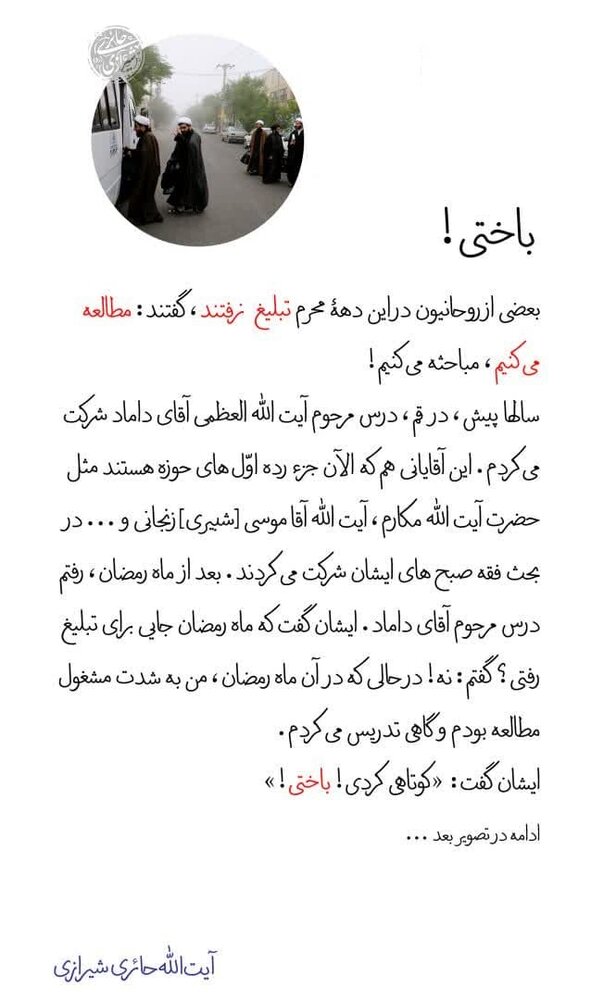 باختی!
بعضی از روحانیون در این دههٔ محرم تبلیغ نرفتند، گفتند: مطالعه
می‌کنیم، مباحثه می‌کنیم!
سالها پیش، در قم، درس مرحوم آیت الله العظمی آقای داماد شرکت
می‌کردم. این آقایانی هم که الآن جزء رده اوّل های حوزه هستند مثل
حضرت آیت الله مکارم، آیت الله آقا موسی [شبیری] زنجانی و ... در
بحث فقه صبح های ایشان شرکت می‌کردند. بعد از ماه رمضان، رفتم
درس مرحوم آقای داماد. ایشان گفت که ماه رمضان جایی برای تبلیغ
رفتی؟ گفتم: نه! در حالی که در آن ماه رمضان، من به شدت مشغول
مطالعه بودم و گاهی تدریس می‌کردم.
ایشان گفت: «کوتاهی کردی! باختی!»
ادامه در تصویر بعد ...
آیت الله حائری شیرازی